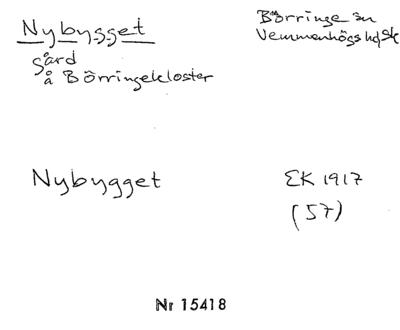 Nybygget
Börringe sn
Vemmenhögs hd Sk
gård
å Börringekloster
Nybygget
EK 1917
(57)
Nr 15418